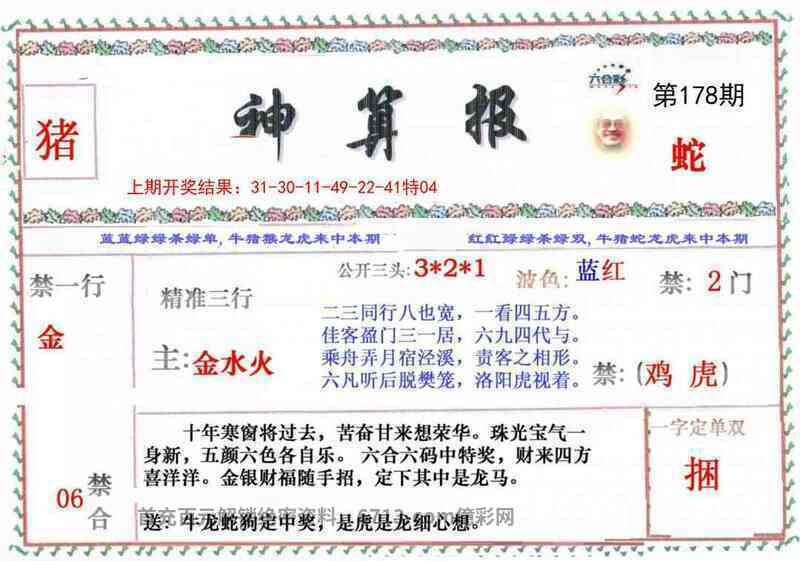 六合彩
第178期
猪
神算报
蛇
上期开奖结果：31-30-11-49-22-41特04
蓝蓝绿绿杀绿单,牛猪猴龙虎来中本期
红红绿绿杀绿双,牛猪蛇龙虎来中本期
禁一行
金
精准三行
主:金水火
公开三头:3*2*1
波色:蓝红
禁:2门
二三同行八也宽，一看四五方。
佳客盈门三一居，六九四代与。
乘舟弄月宿泾溪，责客之相形。
六凡听后脱樊笼，洛阳虎视着。
禁:(鸡 虎)
06
禁合
十年寒窗将过去，苦奋甘来想荣华。珠光宝气一
身新，五颜六色各自乐。 六合六码中特奖，财来四方
喜洋洋。金银财福随手招，定下其中是龙马。
送：牛龙蛇狗定中奖，是虎是龙细心想。
一字定单双
捆